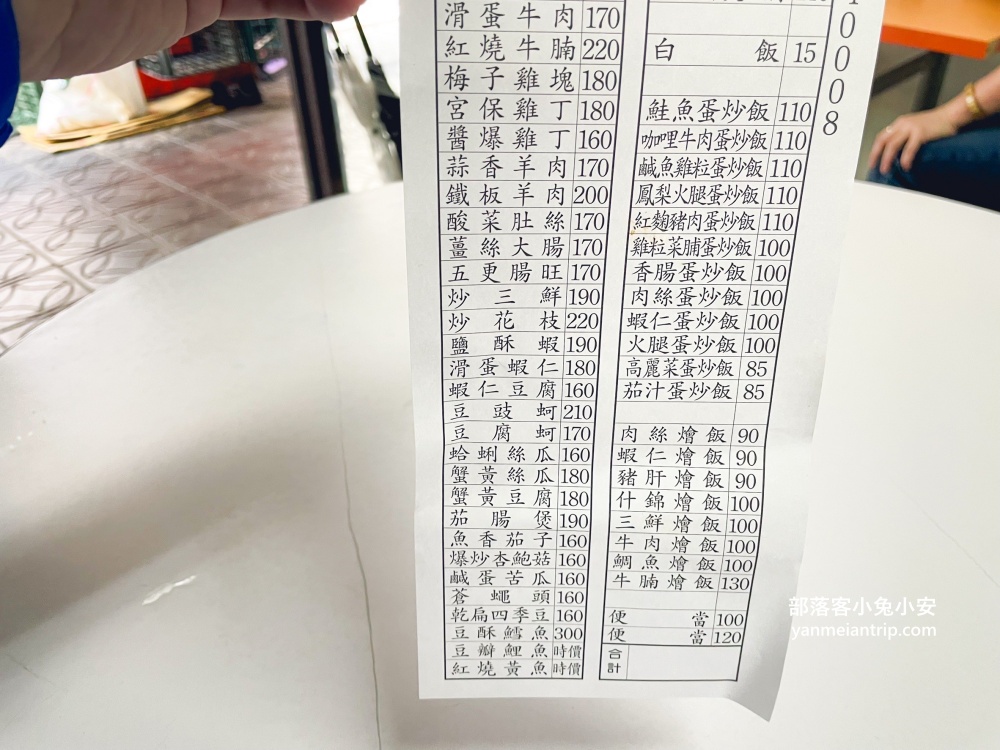 滑蛋牛肉 170
紅燒牛腩 220
梅子雞塊 180
宮保雞丁 180
醬爆雞丁 160
蒜香羊肉 170
鐵板羊肉 200
酸菜肚絲 170
薑絲大腸 170
五更腸旺 170
炒三鮮 190
炒花枝 220
鹽酥蝦 190
滑蛋蝦仁 180
蝦仁豆腐 160
豆豉蚵 210
豆腐蚵 170
蛤蜊絲瓜 160
蟹黃絲瓜 180
蟹黃豆腐 180
茄腸煲 190
魚香茄子 160
爆炒杏鮑菇 160
鹹蛋苦瓜 160
蒼蠅頭 160
乾扁四季豆 160
豆酥鱈魚 300
豆瓣鯉魚 時價
紅燒黃魚 時價
白飯 15
鮭魚蛋炒飯 110
咖哩牛肉蛋炒飯 110
鹹魚雞粒蛋炒飯 110
鳳梨火腿蛋炒飯 110
紅麴豬肉蛋炒飯 110
雞粒菜脯蛋炒飯 100
香腸蛋炒飯 100
肉絲蛋炒飯 100
蝦仁蛋炒飯 100
火腿蛋炒飯 100
高麗菜蛋炒飯 85
茄汁蛋炒飯 85
肉絲燴飯 90
蝦仁燴飯 90
豬肝燴飯 90
什錦燴飯 100
三鮮燴飯 100
牛肉燴飯 100
鯛魚燴飯 100
牛腩燴飯 130
便當 100
便當 120
合計
0008
部落客小兔小安
yanmeiantrip.com